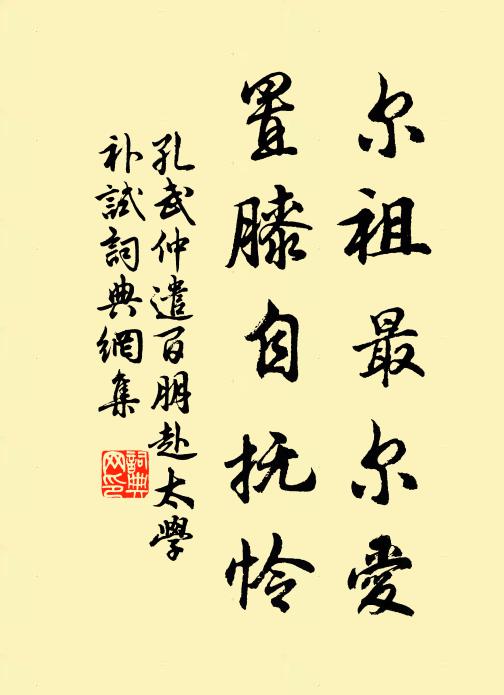 尔祖最尔愛
置膝自抚怜
孔武仲遣百朋赴太學
补試詞典網集
詞典
网印